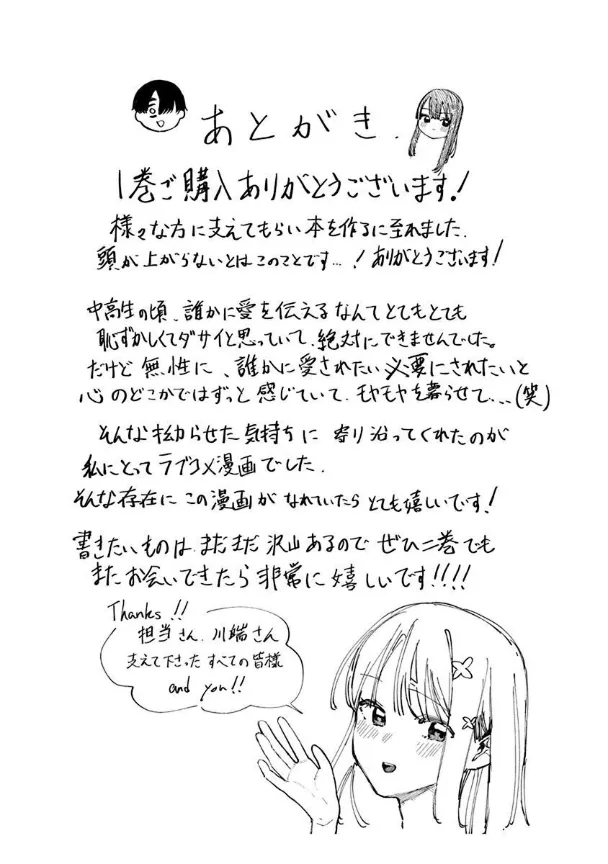 あとがき.
1巻ご購入ありがとうございます!
様々な方に支えてもらい本を作るに至れました.
頭が上がらないとはこのことです…!ありがとうございます!
中高生の頃、誰かに愛を伝えるなんてとてもとても
恥ずかしくてダサイと思っていて、絶対にできませんでした。
だけど無性に、誰かに愛されたい必要にされたいと
心のどこかではずっと感じていて、モヤモヤを募らせて...(笑)
そんな拗らせた気持ちに寄り沿ってくれたのが
私にとってラブコメ漫画でした.
そんな存在にこの漫画がなれていたらとても嬉しいです!
書きたいものはまだまだ沢山あるのでぜひ二巻でも
またお会いできたら非常に嬉しいです!!!!
Thanks!!
担当さん、川端さん
支えて下さったすべての皆様
and you!!